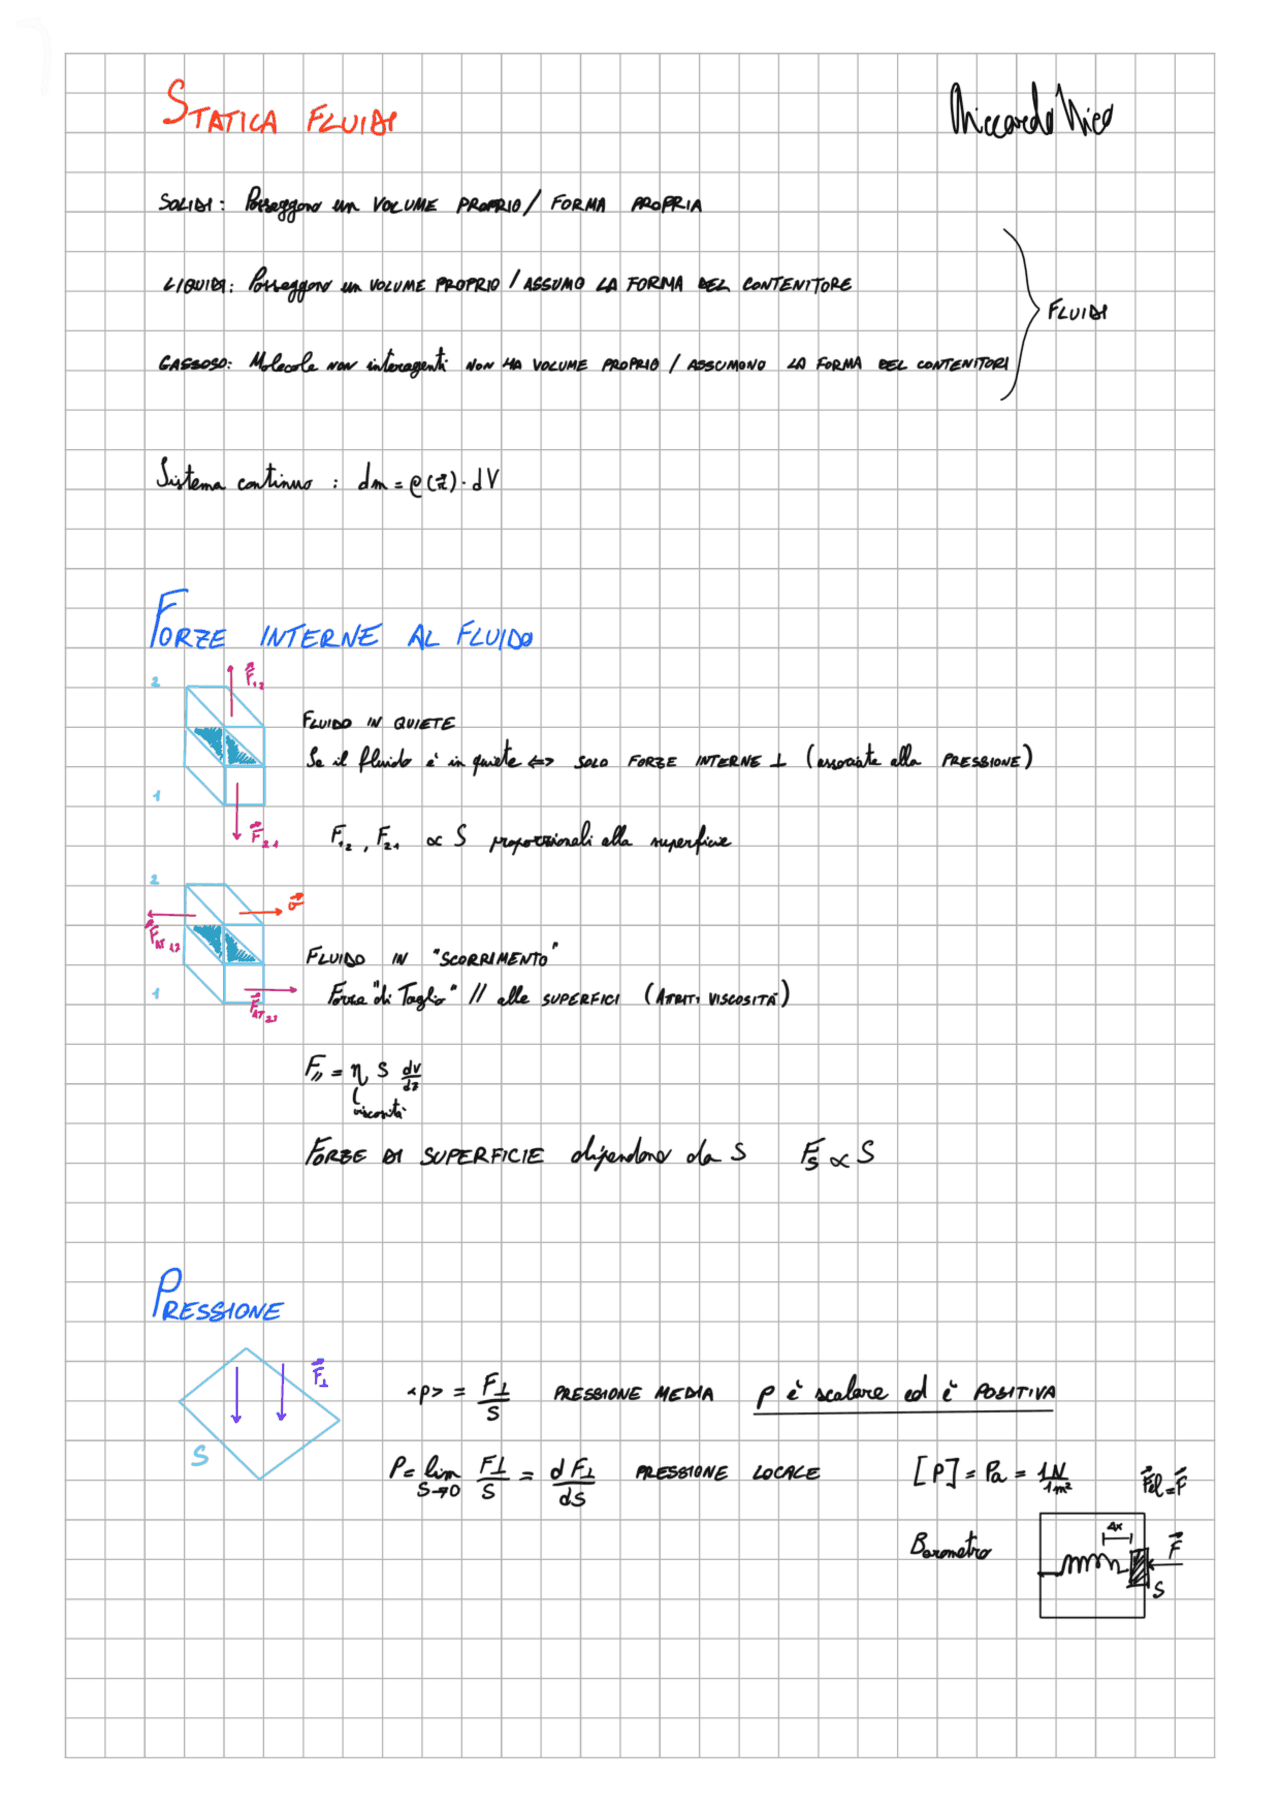 STATICA FLUIDI
Riccardo Nico
SOLIDI: Posseggono un VOLUME PROPRIO / FORMA PROPRIA
LIQUIDI: Posseggono un VOLUME PROPRIO / ASSUMO LA FORMA DEL CONTENITORE
FLUIDI
GASSOSO: Molecole NON interagenti NON HA VOLUME PROPRIO / ASSUMONO LA FORMA DEL CONTENITORI
Sistema continuo : dm = ρ(r⃗)·dV
FORZE INTERNE AL FLUIDO
2
F⃗₁₂
FLUIDO IN QUIETE
Se il fluido è in quiete <=> SOLO FORZE INTERNE ⊥ (associate alla PRESSIONE)
1
F⃗₂₁
F₁₂ , F₂₁ ∝ S proporzionali alla superficie
2
v⃗
F⃗AT 12
FLUIDO IN "SCORRIMENTO"
1
Forza "di Taglio" // alle SUPERFICI (ATRITI VISCOSITÀ)
F⃗AT 21
F// = η S dv/dz
viscosità
FORZE DI SUPERFICIE dipendono da S Fs ∝ S
PRESSIONE
F⃗⊥
<p> = F⊥/S PRESSIONE MEDIA p è scalare ed è POSITIVA
S
P = lim S→0 F⊥/S = dF⊥/dS PRESSIONE LOCALE [P] = Pa = 1N/1m² F⃗el = F⃗
Barometro
Δx
F⃗
S